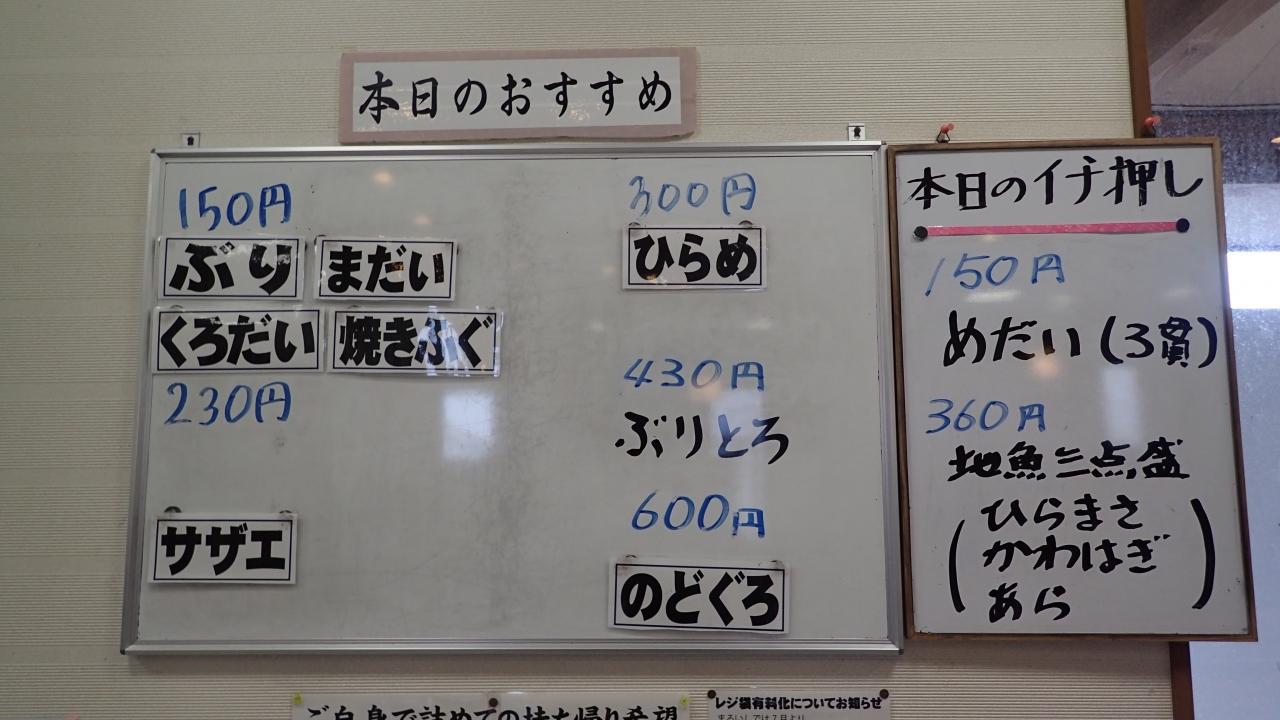 本日のおすすめ
150円
ぶり まだい
くろだい 焼きふぐ
230円
サザエ
300円
ひらめ
430円
ぶりとろ
600円
のどぐろ
本日のイチ押し
150円
めだい(3貫)
360円
地魚三点盛
(ひらまさ
かわはぎ
あら)
ご自身で詰めての持ち帰り希望
レジ袋有料化についてお知らせ